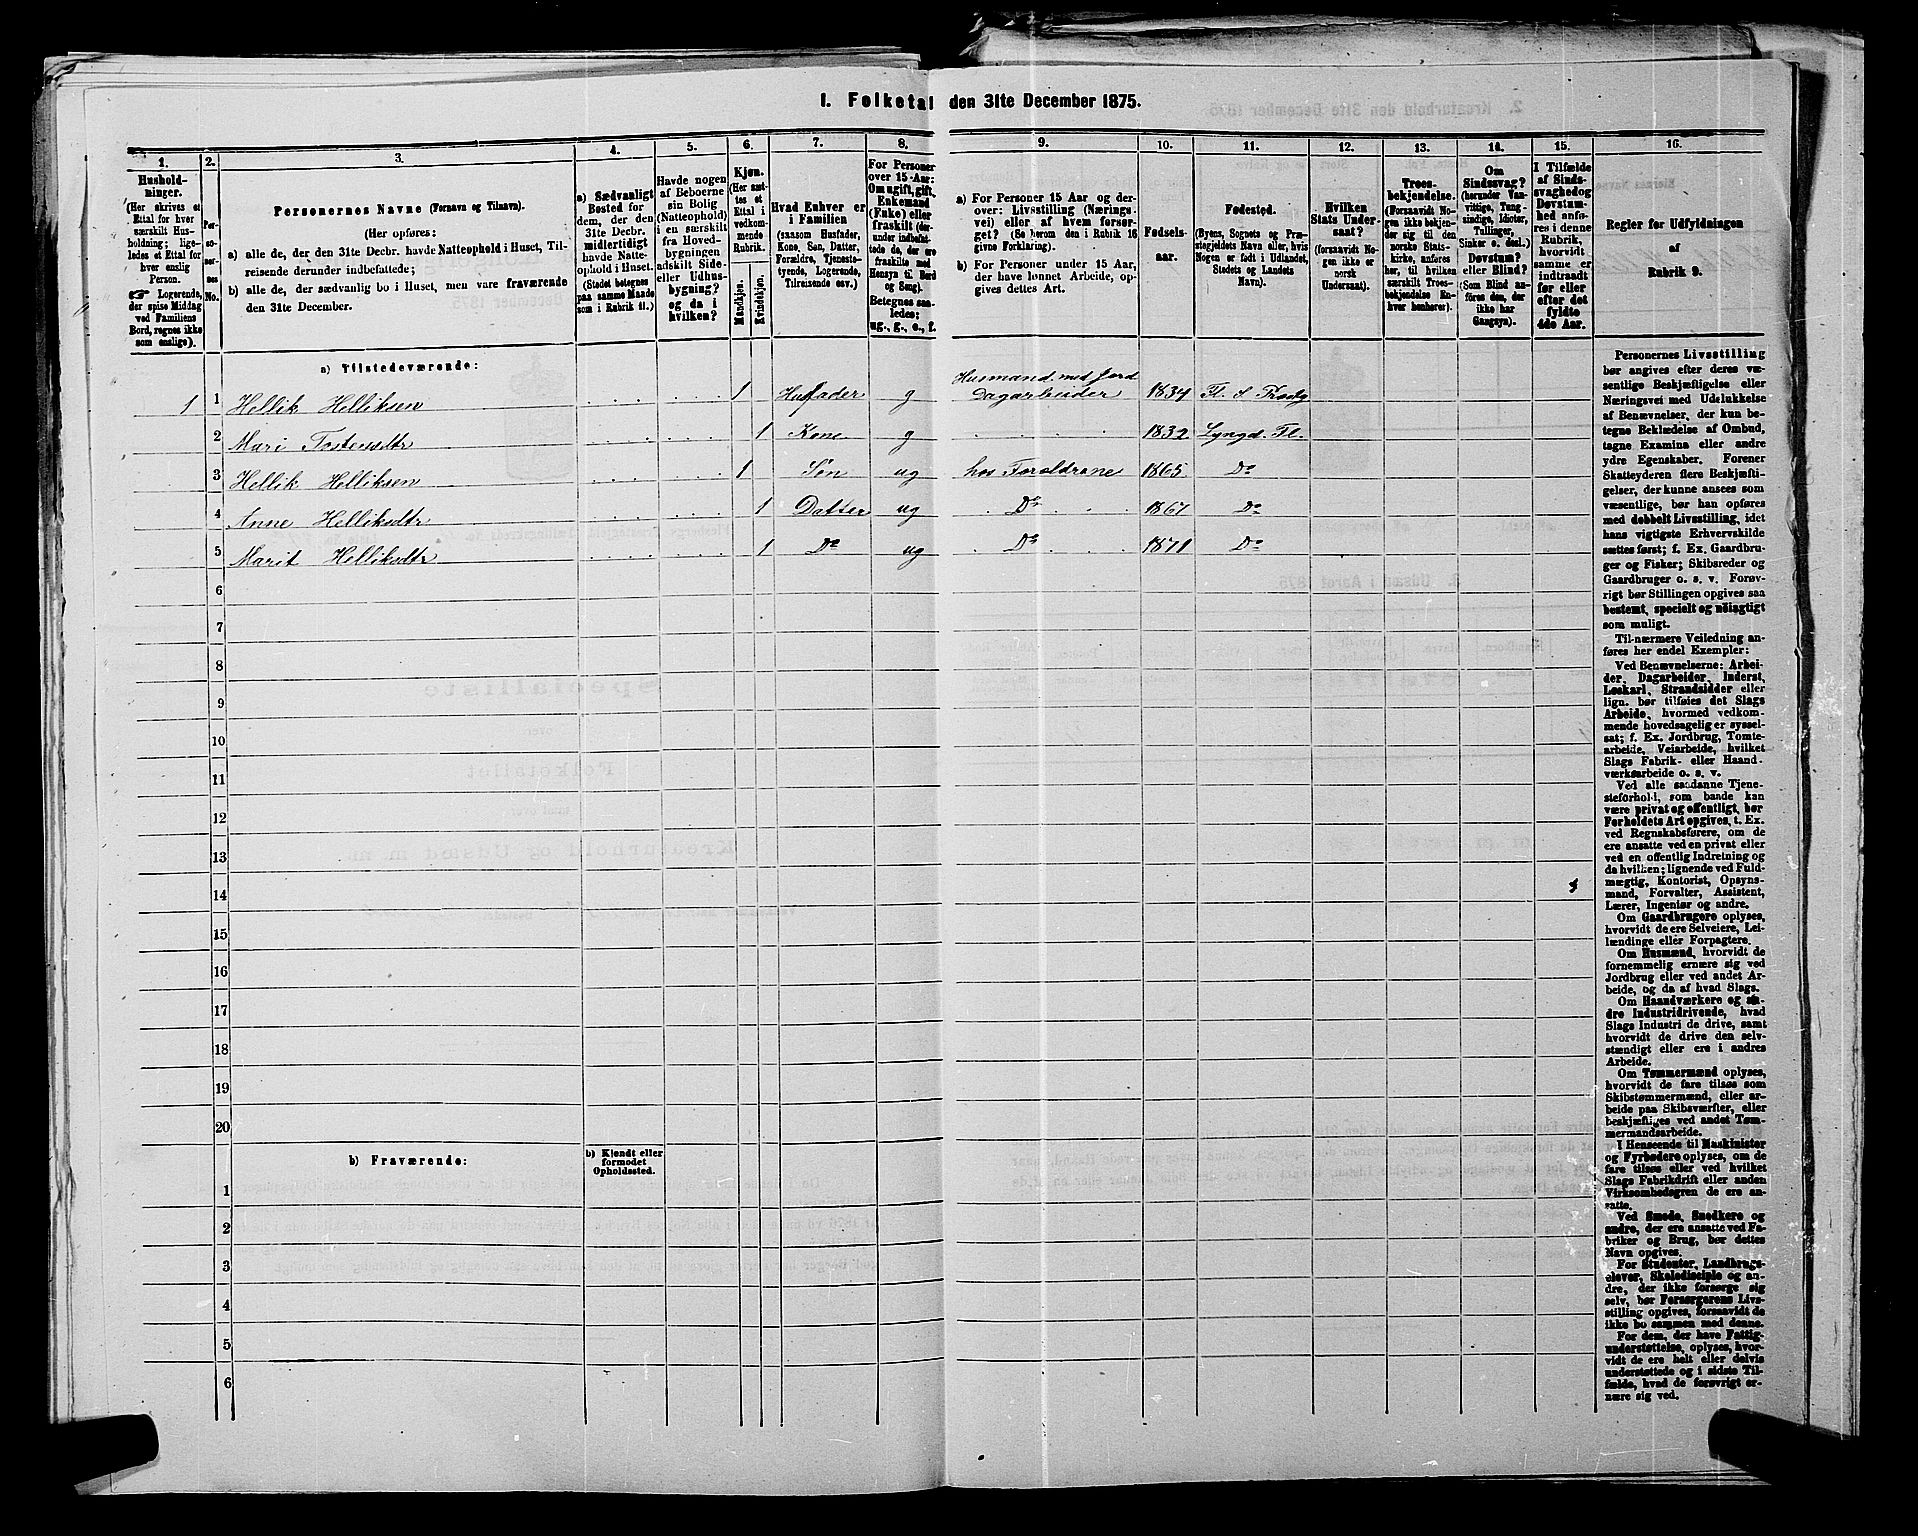 1. Folketal den 31te December 1875.
1.
2.
3.
4.
5.
6.
7.
8.
9.
10.
11.
12.
13.
14.
15.
16.
Hushold-
ninger.
(Her skrives et
Ettal for hver
særskilt Hus-
holdning; lige-
ledes et Ettal for
hver enslig
Person.
☞ Logerende,
der spise Middag
ved Familiens
Bord, regnes ikke
som enslige).
Per-
so-
ner-
nes
No.
Personernes Navne (Fornavn og Tilnavn).
(Her opføres:
a) alle de, der den 31te Decbr. havde Natteophold i Huset, Til-
reisende derunder indbefattede;
b) alle de, der sædvanlig bo i Huset, men vare fraværende
den 31te December.
a) Sædvanligt
Bosted for
dem, der den
31te Decbr.
midlertidigt
havde Natte-
ophold i Huset.
(Stedet betegnes
paa samme Maade
som i Rubrik 11.)
Havde nogen
af Beboerne
sin Bolig
(Natteophold)
i en særskilt
fra Hoved-
bygningen
adskilt Side-
eller Udhus-
bygning?
og da i
hvilken?
Kjøn.
(Her sæt-
tes et
Ettal i
vedkom-
mende
Rubrik.
Mandkjøn.
Kvindekjøn.
Hvad Enhver er
i Familien
(saasom Husfader,
Kone, Søn, Datter,
Forældre, Tjeneste-
tyende, Logerende,
Tilreisende osv.)
For Personer
over 15 Aar:
Om ugift, gift,
Enkemand
(Enke) eller
fraskilt (der-
under indbefat-
tede de, der ere
fraskilte med
Hensyn til Bord
og Seng).
Betegnes saa-
ledes:
ug., g., e., f.
a) For Personer 15 Aar og der-
over: Livsstilling (Nærings-
vei) eller af hvem forsør-
get? (Se herom den i Rubrik 16
givne Forklaring).
b) For Personer under 15 Aar,
der have lønnet Arbeide, op-
gives dettes Art.
Fødsels-
aar.
Fødested.
(Byens, Sognets og Præ-
stegjeldets Navn eller, hvis
Nogen er født i Udlandet,
Stedets og Landets
Navn).
Hvilken
Stats Under-
saat?
(forsaavidt No-
gen ikke er
norsk
Undersaat).
Troes-
bekjendelse.
(Forsaavidt No-
gen ikke bekjen-
der sig til den
norske Stats-
kirke, anføres
her, til hvilken
særskilt Troes-
bekjendelse En-
hver henhører).
Om
Sindssvag?
(herunder Van-
vittige, Tung-
sindige, Idioter,
Tullinger,
Sinker o. desl.)
Døvstum?
eller Blind?
(Som Blind an-
føres den, der
ikke har
Gangsyn).
I Tilfælde
af Sinds-
svaghed og
Døvstum-
hed anfø-
res i denne
Rubrik,
hvorvidt
samme er
indtraadt
før eller
efter det
fyldte
4de Aar.
Regler for Udfyldningen
af
Rubrik 9.
a) Tilstedeværende:
1 1 Hellik Helliksen 1 Husfader g Husmand med Jord Dagarbeider 1834 Fl. S
2 Mari Tostensdtr 1 Kone g 1832 Lyngd. Fl.
3 Hellik Helliksen 1 Søn ug hos Foroldrene 1865 Do
4 Anne Helliksdtr 1 Datter ug Do 1867 Do
5 Marit Helliksdtr 1 Do ug Do 1871 Do
6
7
8
9
10
11
12
13
14
15
16
17
18
19
20
b) Fraværende:
b) Kjendt eller
formodet
Opholdssted.
1
2
3
4
5
6
Personernes Livsstilling
bør angives efter deres væ-
sentlige Beskjæftigelse eller
Næringsvei med Udelukkelse
af Benævnelser, der kun be-
tegne Beklædelse af Ombud,
tagne Examina eller andre
ydre Egenskaber. Forener
Skatteyderen flere Beskjæfti-
gelser, der kunne ansees som
væsentlige, bør han opføres
med dobbelt Livsstilling, idet
hans vigtigste Erhvervskilde
sættes først; f. Ex. Gaardbru-
ger og Fisker; Skibsreder og
Gaardbruger o. s. v. Forøv-
rigt bør Stillingen opgives saa
bestemt, specielt og nøiagtigt
som muligt.
Til nærmere Veiledning an-
føres her endel Exempler:
Ved Benævnelserne: Arbei-
der, Dagarbeider, Inderst,
Løskarl, Strandsidder eller
lign. bør tilføies det Slags
Arbeide, hvormed vedkom-
mende hovedsagelig er syssel-
sat; f. Ex. Jordbrug, Tomte-
arbeide, Veiarbeide, hvilket
Slags Fabrik- eller Haand-
værksarbeide o. s. v.
Ved alle saadanne Tjene-
steforhold, som baade kan
være privat og offentligt, bør
Forholdets Art opgives, t. Ex.
ved Regnskabsførere, om de
ere ansatte ved en privat eller
ved en offentlig Indretning og
da hvilken; lignende ved Fuld-
mægtig, Kontorist, Opsyns-
mand, Forvalter, Assistent,
Lærer, Ingeniør og andre.
Om Gaardbrugere oplyses,
hvorvidt de ere Selveiere, Lei-
lændinge eller Forpagtere.
Om Husmænd, hvorvidt de
fornemmelig ernære sig ved
Jordbrug eller ved andet Ar-
beide, og da af hvad Slags.
Om Haandværkere og an-
dre Industridrivende, hvad
Slags Industri de drive, samt
hvorvidt de drive den selv-
stændigt eller ere i andres
Arbeide.
Om Tømmermænd oplyses,
hvorvidt de fare tilsøs som
Skibstømmermænd, eller ar-
beide paa Skibsværfter, eller
beskjæftiges ved andet Tøm-
mermandsarbeide.
I Henseende til Maskinister
og Fyrbødere oplyses, om de
fare tilsøs eller ved hvilket
Slags Fabrikdrift eller anden
Virksomhedsgren de ere an-
satte.
Ved Smede, Snedkere og
andre, der ere ansatte ved Fa-
briker og Brug, bør dettes
Navn opgives.
For Studenter, Landbrugs-
elever, Skoledisciple og an-
dre, der ikke forsørge sig
selv, bør Forsørgerens Livs-
stilling opgives, forsaavidt de
ikke bo sammen med denne.
For dem, der have Fattig-
understøttelse, oplyses, hvor-
vidt de ere helt eller delvis
understøttede og i sidste Til-
fælde, hvad de forøvrigt er-
nære sig ved.